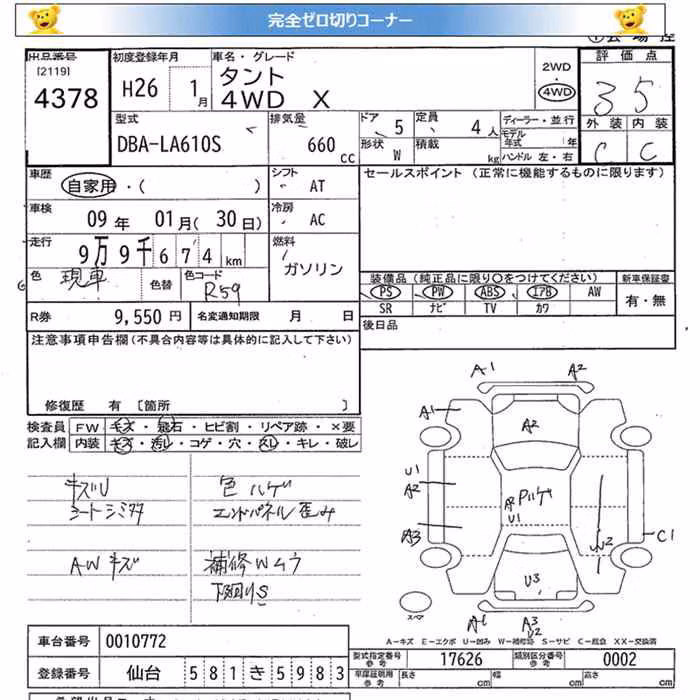 完全ゼロ切りコーナー
出品番号
[2119]
4378
初度登録年月
H26 1月
車名・グレード
タント
4WD X
2WD
4WD
評価点
3 5
外装 内装
C C
型式
DBA-LA610S
排気量
660 cc
ドア 5
定員 4人
形状 W
積載 kg
ディーラー・並行
モデル年式 年
ハンドル 左・右
車歴
自家用・( )
シフト
AT
セールスポイント (正常に機能するものに限ります)
車検
09年 01月(30日)
冷房
AC
走行
9万9千674km
燃料
ガソリン
色 現車
色替
色コード
R59
装備品 (純正品に限り○をつけてください)
PS PW ABS エアB AW
SR ナビ TV カワ
新車保証書
有・無
R券 9,550円
名変通知期限 月 日
後日品
注意事項申告欄(不具合内容等は具体的に記入して下さい)
修復歴 有 [箇所 ]
検査員記入欄
FW キズ・飛石・ヒビ割・リペア跡・×要
内装 キズ・汚レ・コゲ・穴・スレ・キレ・破レ
キズU 色ハゲ
シートシミ
エンドパネル歪み
AWキズ
補修Wムラ
下回りS
A1 A2
A1
A2
U1
A2
A3
U1
U2
C1
U3
A3
U2
スペア
A-キズ E-エクボ U-凹み W-補修跡 S-サビ C-腐食 XX-交換済
車台番号 0010772
登録番号 仙台 581き5983
型式指定番号 参考 17626
類別区分番号 参考 0002
車庫証明用 参考 長さ 幅 高さ